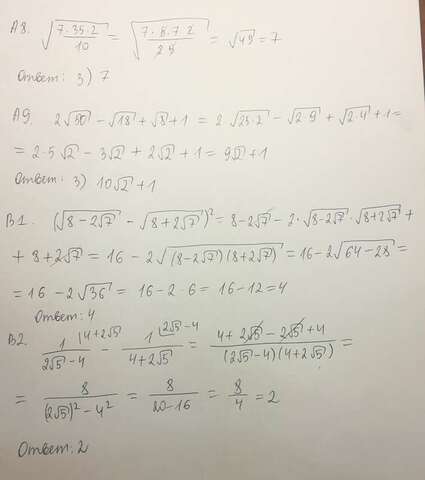 А8. √(7·35·2/10) = √(7·5·7·2/2·5) = √49 = 7
Ответ: 3) 7
А9. 2√50 - √18 + √8 + 1 = 2√(25·2) - √(2·9) + √(2·4) + 1 =
= 2·5√2 - 3√2 + 2√2 + 1 = 9√2 + 1
Ответ: 3) 10√2 + 1
В1. (√(8-2√7) - √(8+2√7))² = 8-2√7 - 2·√(8-2√7)·√(8+2√7) +
+ 8+2√7 = 16 - 2√((8-2√7)(8+2√7)) = 16-2√(64-28) =
= 16 - 2√36 = 16 - 2·6 = 16-12 = 4
Ответ: 4
В2. 1/(2√5-4) |4+2√5 - 1/(4+2√5) |2√5-4 = (4+2√5-2√5+4)/((2√5-4)(4+2√5)) =
= 8/((2√5)²-4²) = 8/(20-16) = 8/4 = 2
Ответ: 2